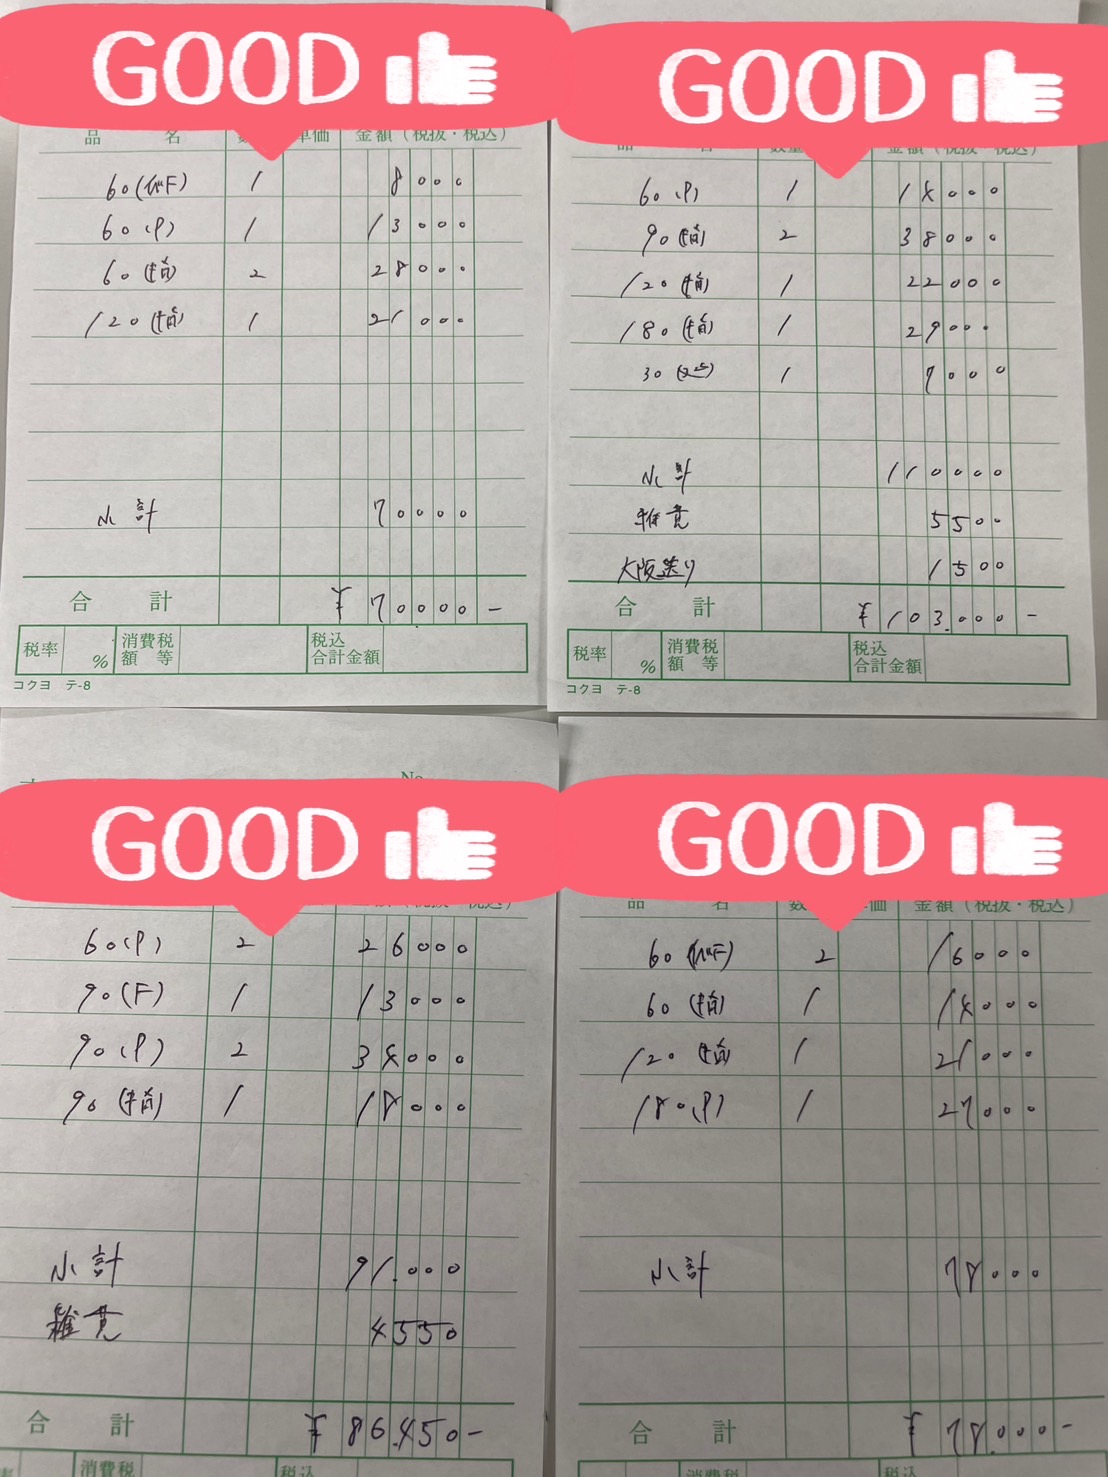 GOOD
品 名 単価 金額（税抜・税込）
60(ﾍﾙF) 1 8000
60(P) 1 13000
60(指) 2 28000
120(指) 1 21000
小計 70000
合 計 ¥70000-
税率 % 消費税額等 税込合計金額
コクヨ テ-8
GOOD
60(P) 1 14000
90(指) 2 38000
120(指) 1 22000
180(指) 1 29000
30 1 7000
小計 110000
雑費 5500
大阪送り 1500
合 計 ¥103.000-
税率 % 消費税額等 税込合計金額
コクヨ テ-8
No
GOOD
60(P) 2 26000
90(F) 1 13000
90(P) 2 34000
90(指) 1 18000
小計 91.000
雑費 4550
合 計 ¥86.450-
消費税 税込
GOOD
品 名 数 単価 金額（税抜・税込）
60(ﾍﾙF) 2 16000
60(指) 1 14000
120(指) 1 21000
180(P) 1 27000
小計 78000
合 計 ¥78.000-
消費税 税込